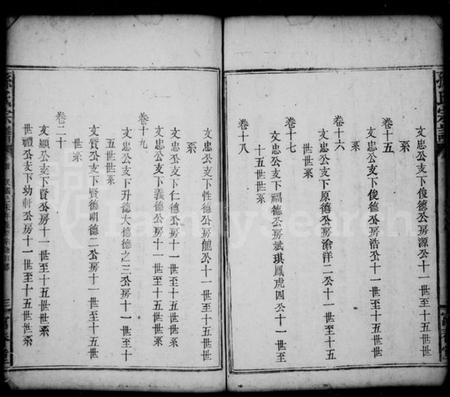 卷十五
文忠公支下俊德公房源公十一世至十五世世
系
文忠公支下俊德公房浩公十一世至十五世世
系
卷十六
文忠公支下原德公房渝洋二公十一世至十五
世世系
卷十七
文忠公支下福德公房斌琪鳳虎四公十一世至
十五世世系
卷十八
文忠公支下性德公房 公十一世至十五世世
系
文忠公支下仁德公房十一世至十五世世系
文忠公支下義德公房十一世至十五世世系
卷十九
文忠公支下升德大德德之三公房十一世至十
五世世系
文賢公支下賢德明德二公房十一世至十五世
世系
卷二十
文顯公支下賢公房十一世至十五世世系
世禮公支下幼軒公房十一世至十五世世系